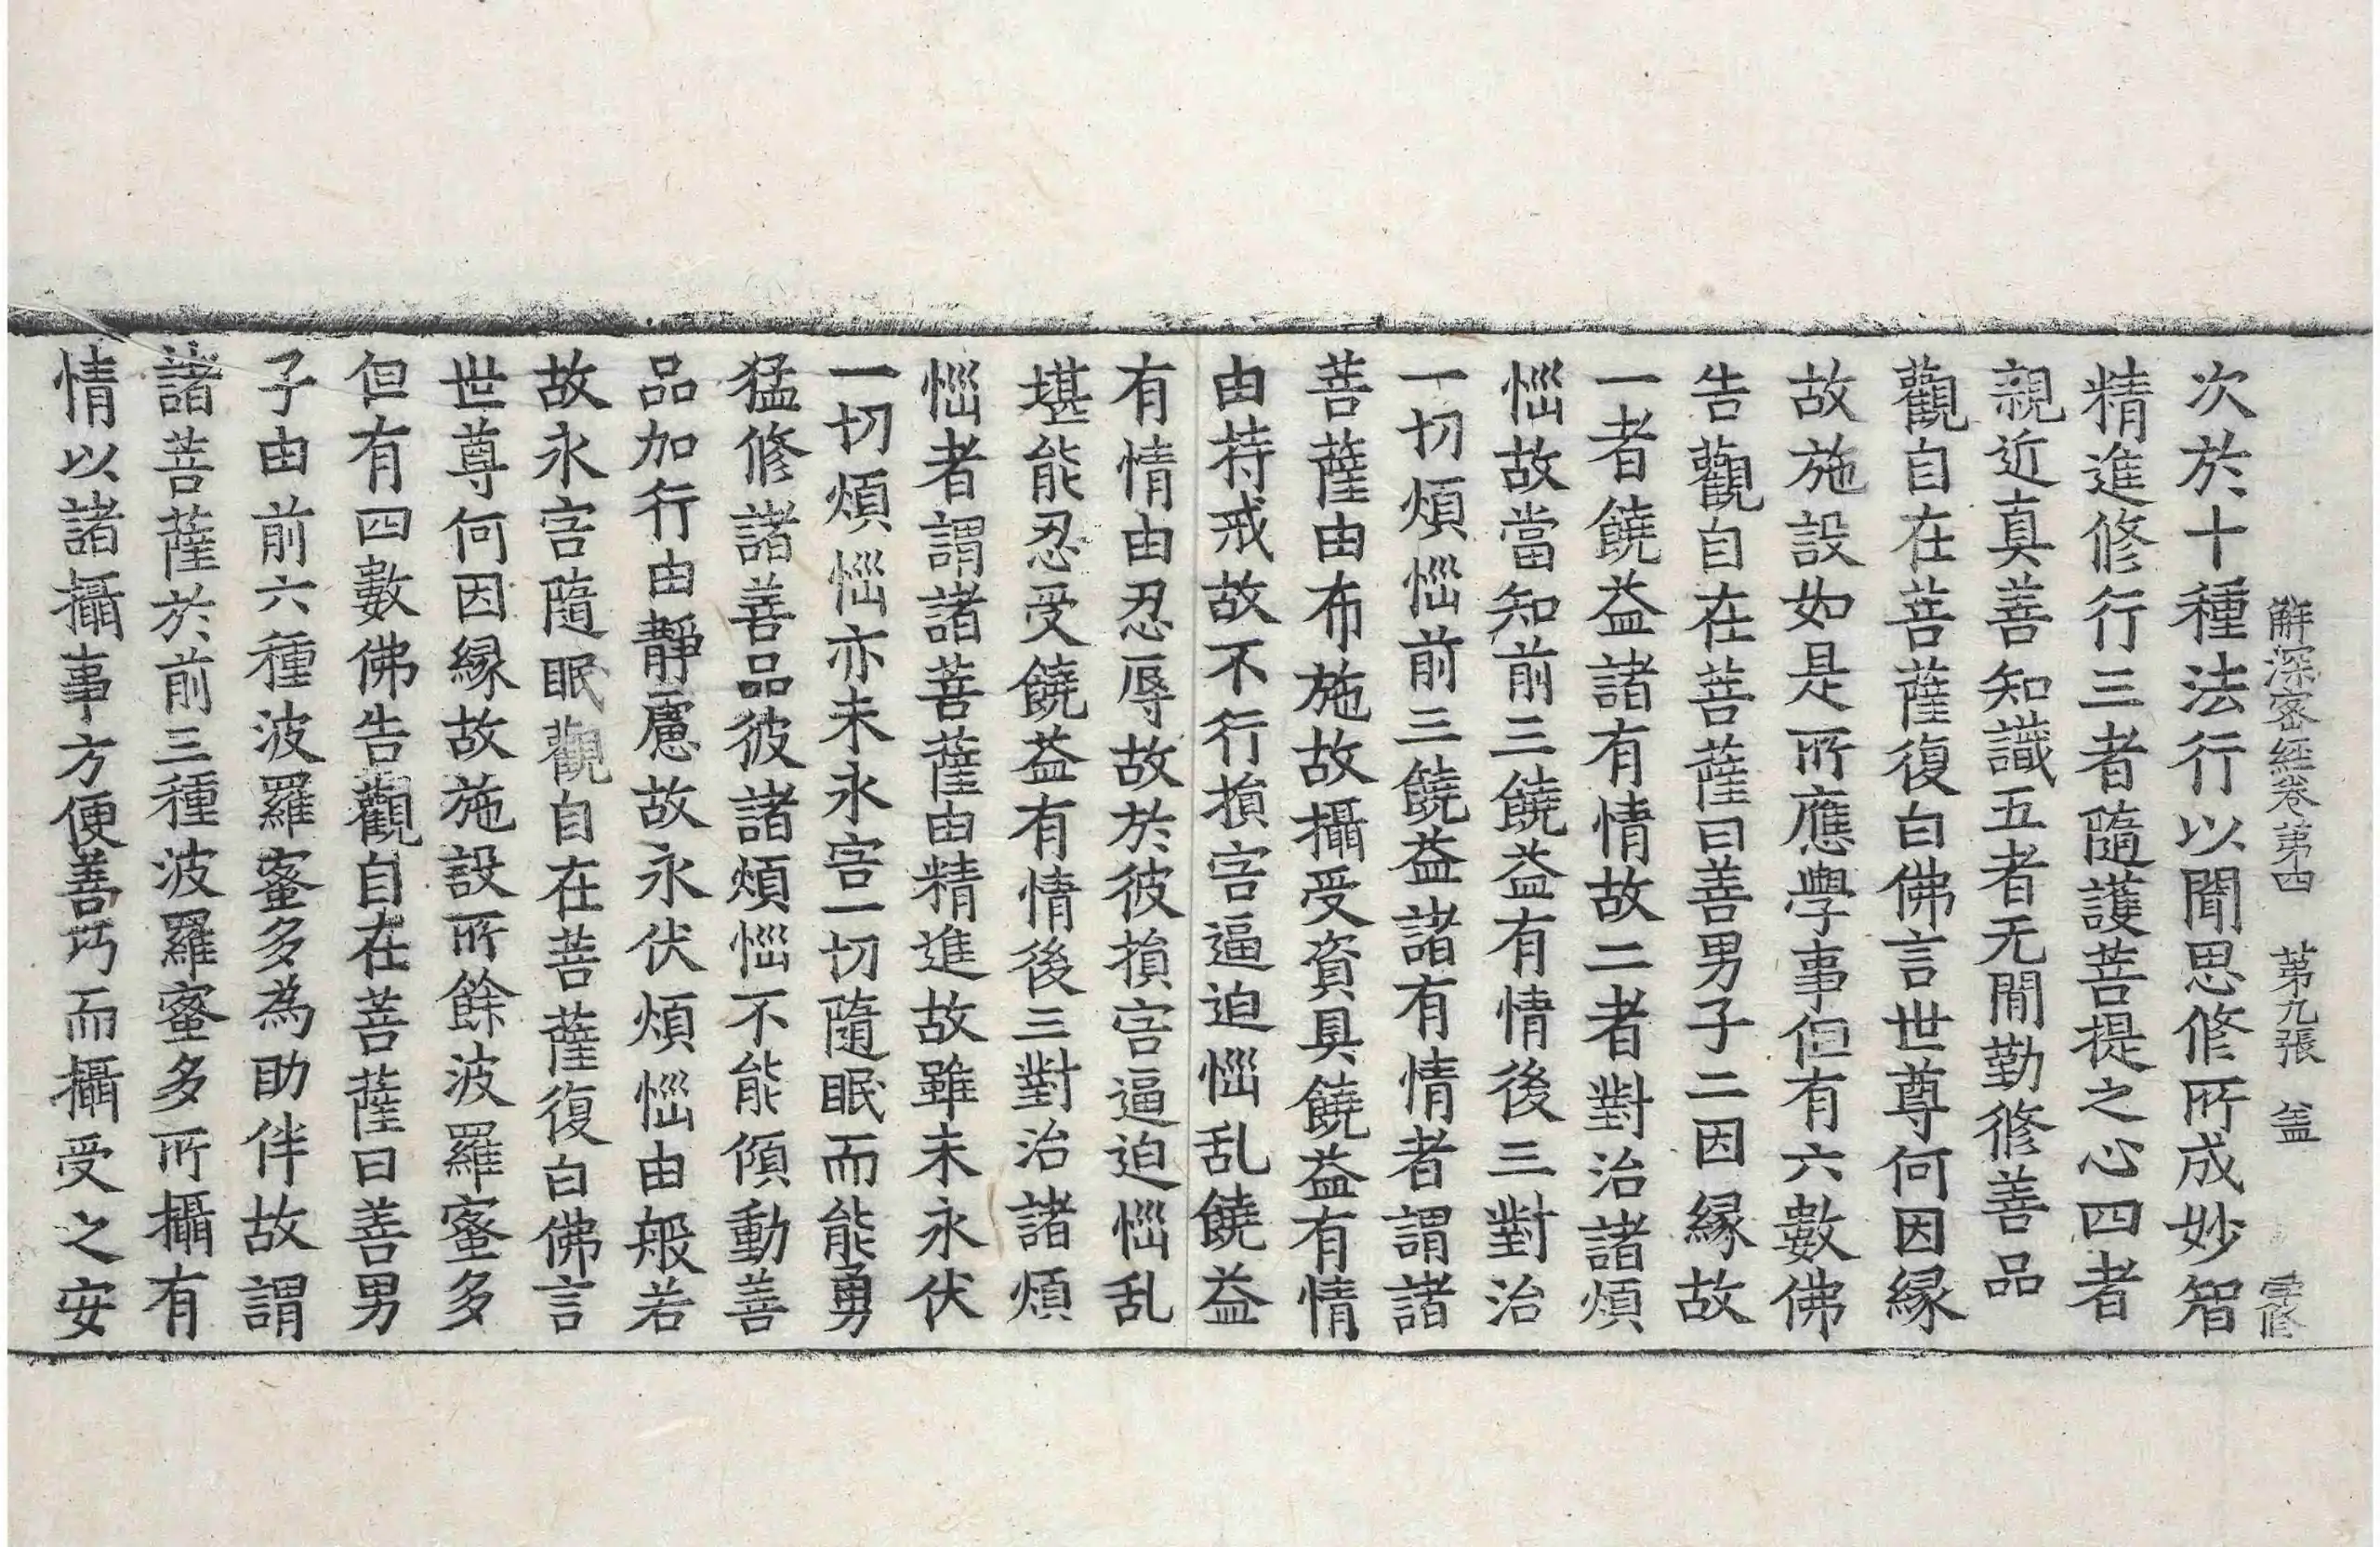 解深密經卷第四 第九張 盖
次於十種法行以聞思修所成妙智
精進修行三者隨護菩提之心四者
親近真善知識五者无間勤修善品
觀自在菩薩復白佛言世尊何因縁
故施設如是所應學事但有六數佛
告觀自在菩薩曰善男子二因縁故
一者饒益諸有情故二者對治諸煩
惱故當知前三饒益有情後三對治
一切煩惱前三饒益諸有情者謂諸
菩薩由布施故攝受資具饒益有情
由持戒故不行損害逼迫惱乱饒益
有情由忍辱故於彼損害逼迫惱乱
堪能忍受饒益有情後三對治諸煩
惱者謂諸菩薩由精進故雖未永伏
一切煩惱亦未永害一切隨眠而能勇
猛修諸善品彼諸煩惱不能傾動善
品加行由靜慮故永伏煩惱由般若
故永害隨眠觀自在菩薩復白佛言
世尊何因縁故施設所餘波羅蜜多
但有四數佛告觀自在菩薩曰善男
子由前六種波羅蜜多為助伴故謂
諸菩薩於前三種波羅蜜多所攝有
情以諸攝事方便善巧而攝受之安